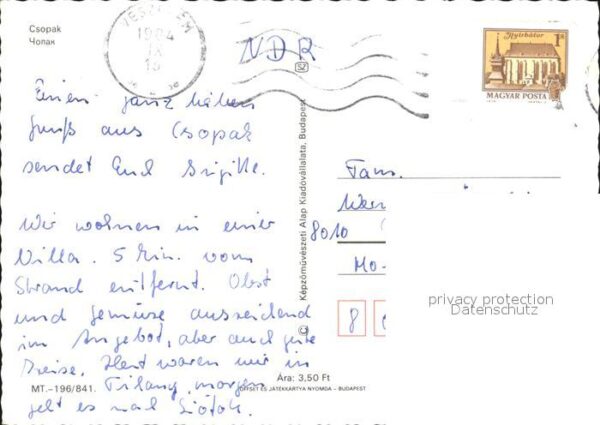 Csopak
Чопак
VESZPRÉM
1984
IX
NDR
Nyírbátor
1 Ft
MAGYAR POSTA
Einen ganz lieben
Gruß aus Csopak
sendet Euch Brigitte.
Wir wohnen in einer
Villa. 5 Min. vom
Strand entfernt. Obst
und Gemüse ausreichend
im Angebot, aber auch gute
Preise. Heut waren wir in
Tihany, morgen
geht es nach Siófok.
MT.-196/841.
Ára: 3,50 Ft
OFFSET ÉS JÁTÉKKÁRTYA NYOMDA – BUDAPEST
© Képzőművészeti Alap Kiadóvállalata, Budapest
SZ
Fam.
Wer
8010
8
privacy protection
Datenschutz